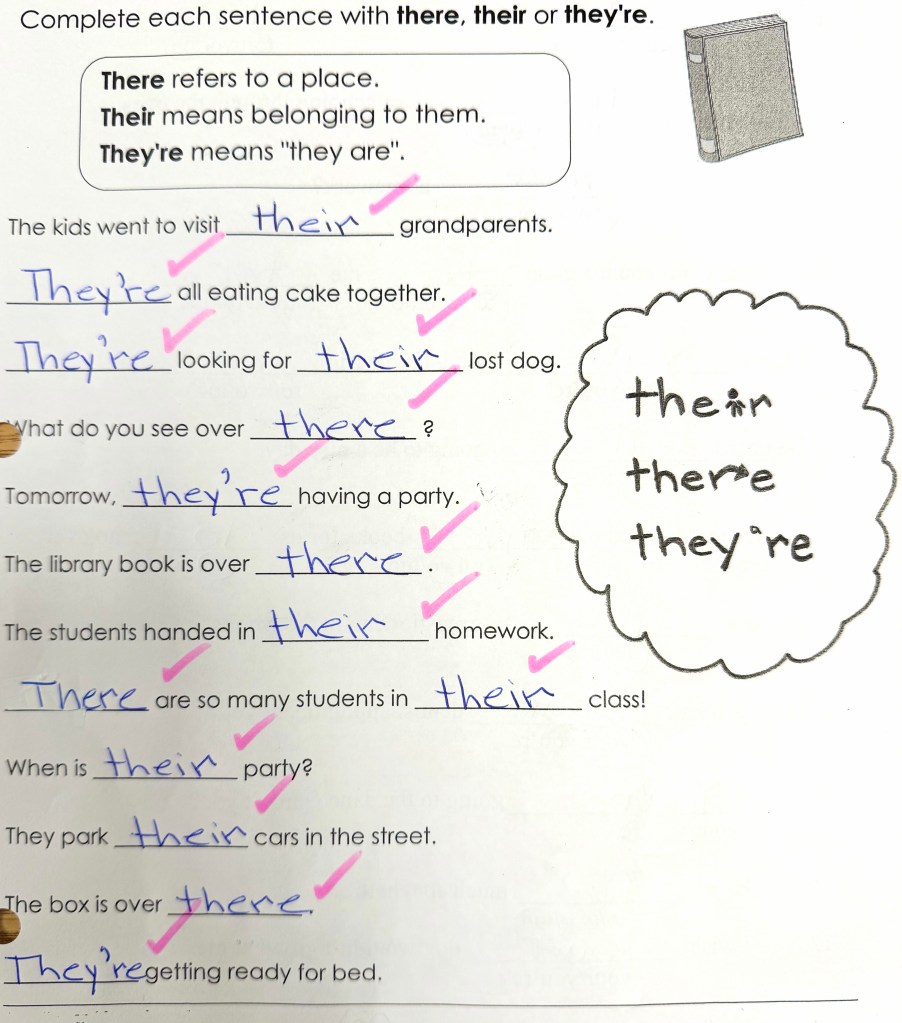 Complete each sentence with there, their or they're.
There refers to a place.
Their means belonging to them.
They're means "they are".
The kids went to visit their grandparents.
They're all eating cake together.
They're looking for their lost dog.
What do you see over there ?
Tomorrow, they're having a party.
The library book is over there .
The students handed in their homework.
There are so many students in their class!
When is their party?
They park their cars in the street.
The box is over there.
They're getting ready for bed.
their
there
they're